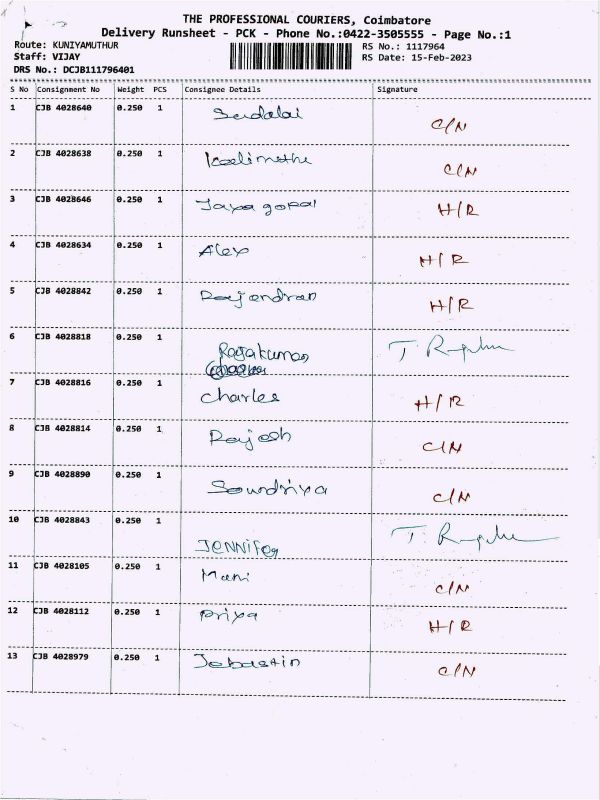 THE PROFESSIONAL COURIERS, Coimbatore
Delivery Runsheet - PCK - Phone No.:0422-3505555 - Page No.:1
Route: KUNIYAMUTHUR RS No.: 1117964
Staff: VIJAY RS Date: 15-Feb-2023
DRS No.: DCJB111796401
S No Consignment No Weight PCS Consignee Details Signature
1 CJB 4028640 0.250 1 Sudalai C/N
2 CJB 4028638 0.250 1 C/N
3 CJB 4028646 0.250 1 Jayagopal H/R
4 CJB 4028634 0.250 1 Alex H/R
5 CJB 4028842 0.250 1 Rajendran H/R
6 CJB 4028818 0.250 1 Rajakumar
7 CJB 4028816 0.250 1 Charles H/R
8 CJB 4028814 0.250 1 Rajesh C/N
9 CJB 4028890 0.250 1 Soundriya C/N
10 CJB 4028843 0.250 1 JENNIFER
11 CJB 4028105 0.250 1 Mani C/N
12 CJB 4028112 0.250 1 Priya H/R
13 CJB 4028979 0.250 1 Jebastin C/N